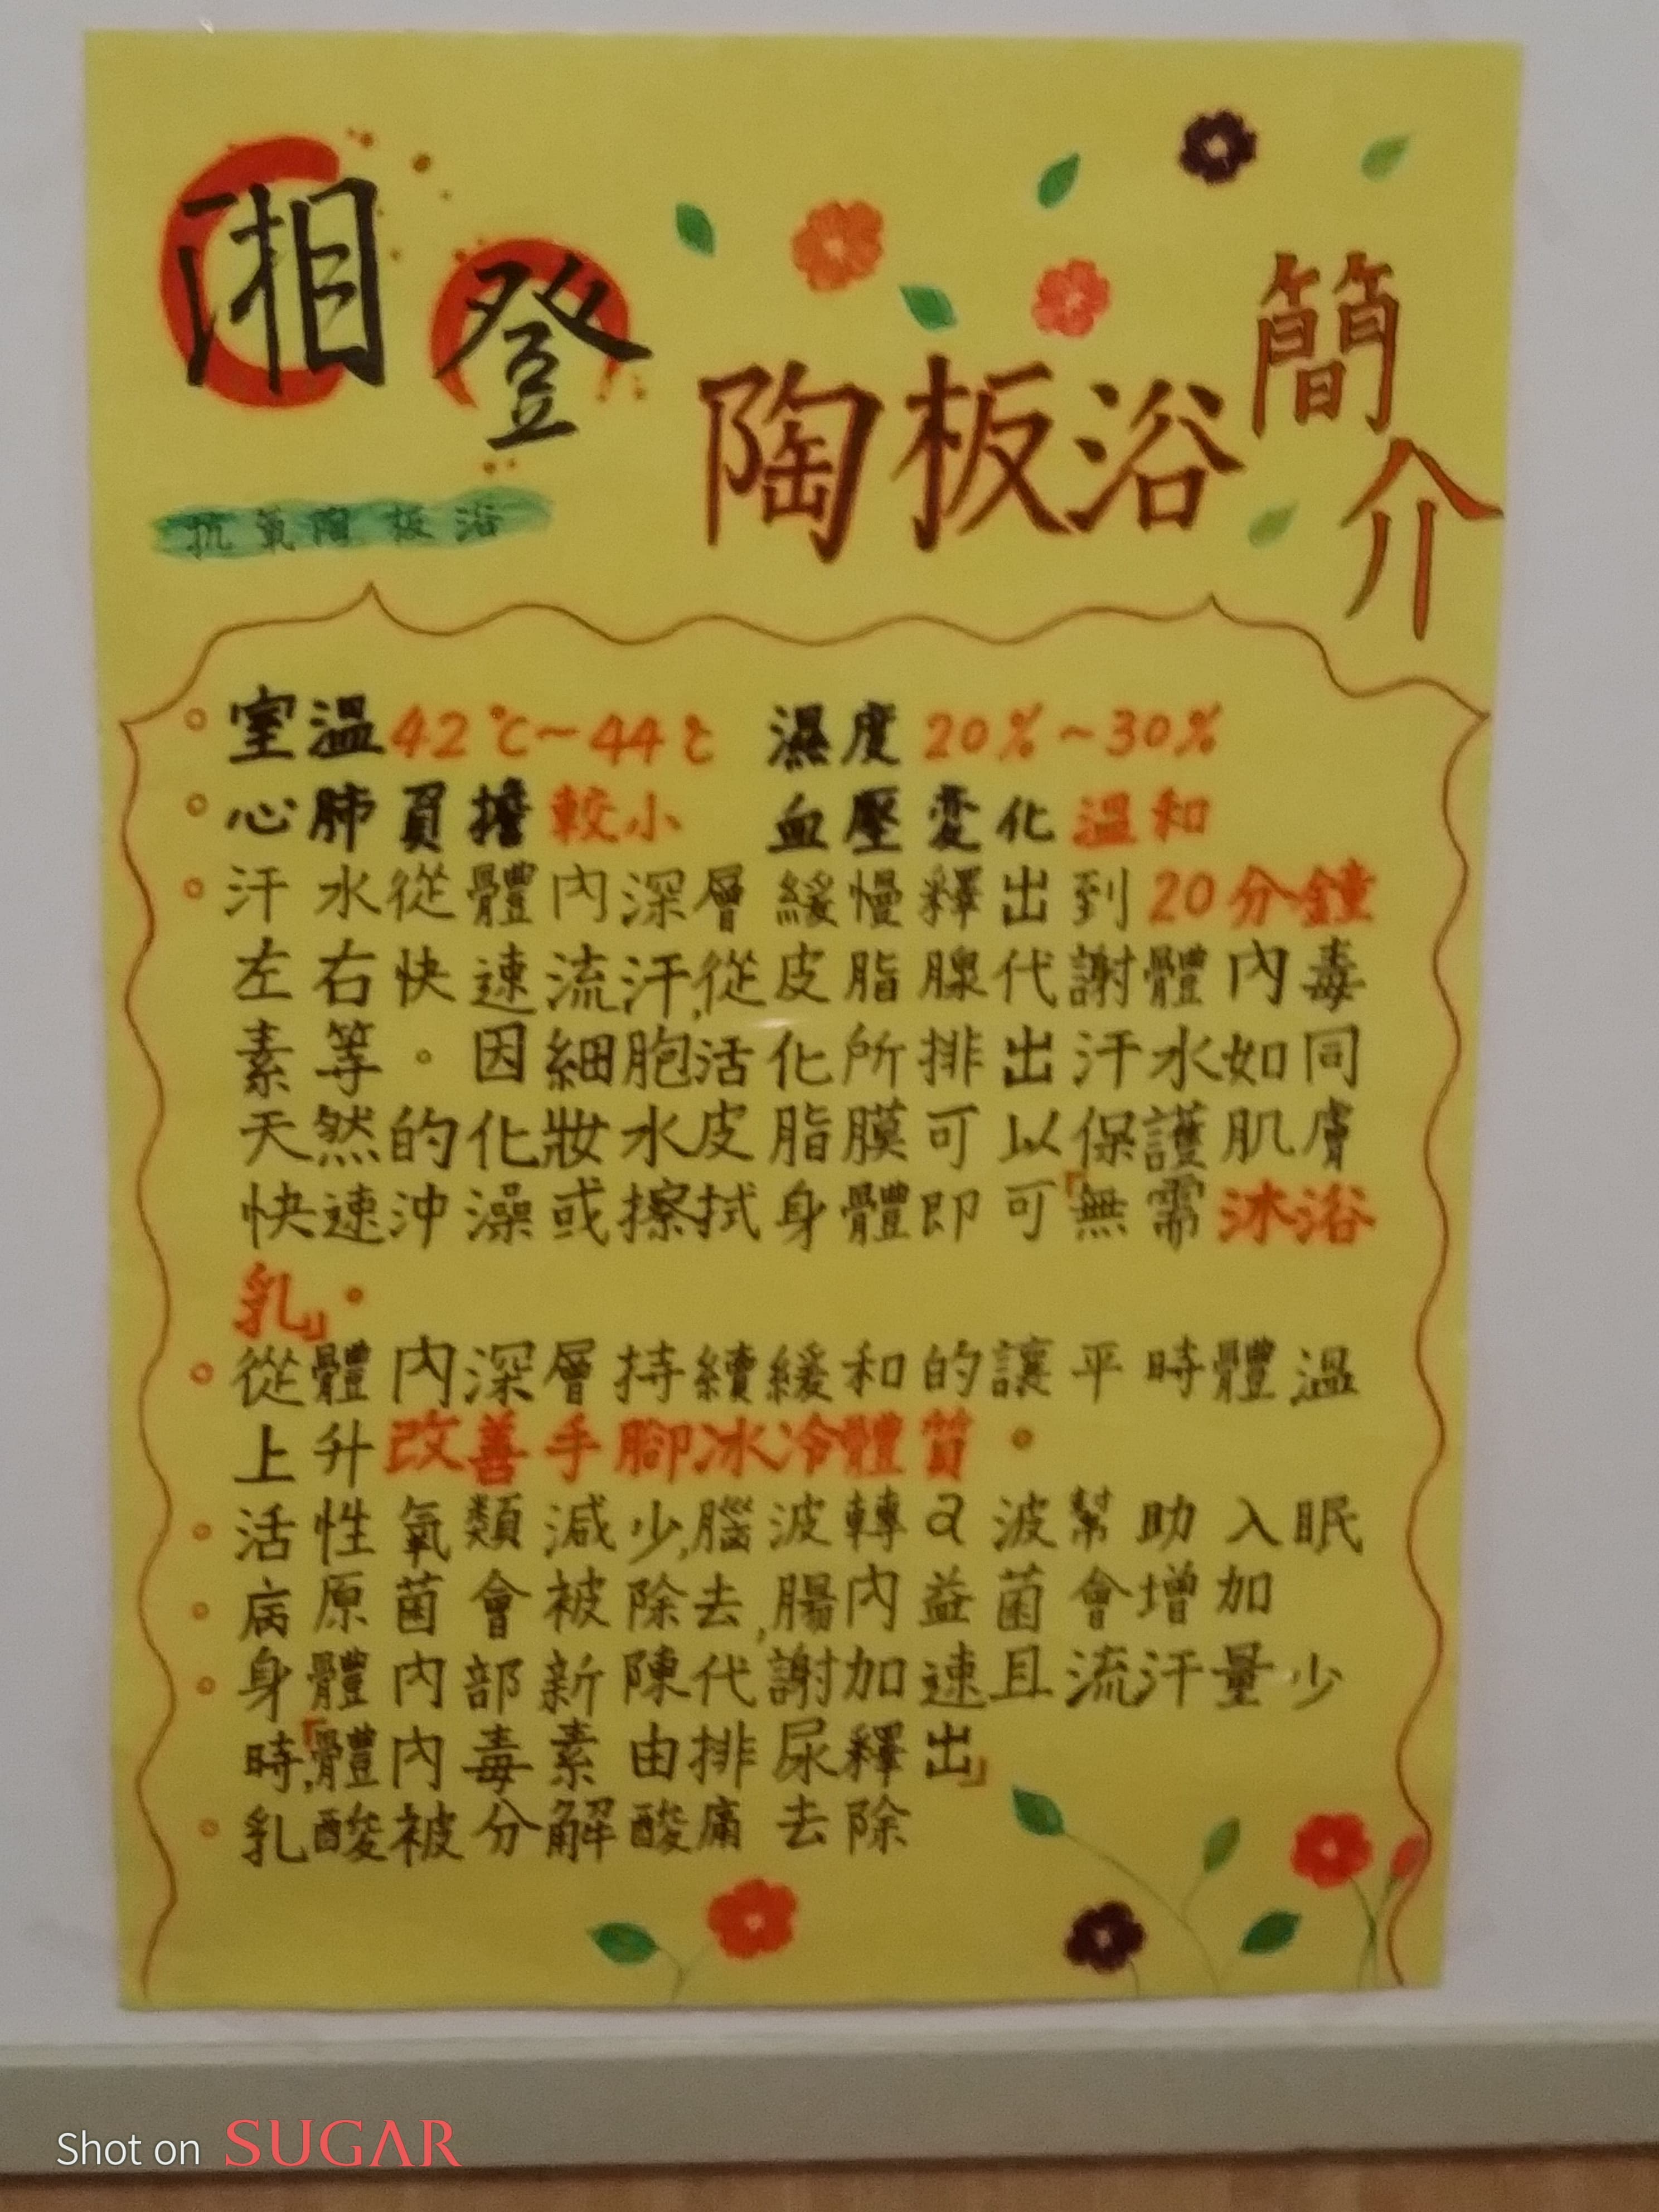 湘登
陶板浴
簡介
抗氧陶板浴
室溫42℃~44℃ 濕度20%~30%
心肺負擔較小 血壓變化溫和
汗水從體內深層緩慢釋出到20分鐘
左右快速流汗,從皮脂腺代謝體內毒
素等。因細胞活化所排出汗水如同
天然的化妝水皮脂膜可以保護肌膚
快速沖澡或擦拭身體即可「無需沐浴
乳」。
從體內深層持續緩和的讓平時體溫
上升改善手腳冰冷體質。
活性氧類減少,腦波轉a波幫助入眠
病原菌會被除去,腸內益菌會增加
身體內部新陳代謝加速且流汗量少
時,「體內毒素由排尿釋出」
乳酸被分解酸痛去除
Shot on SUGAR